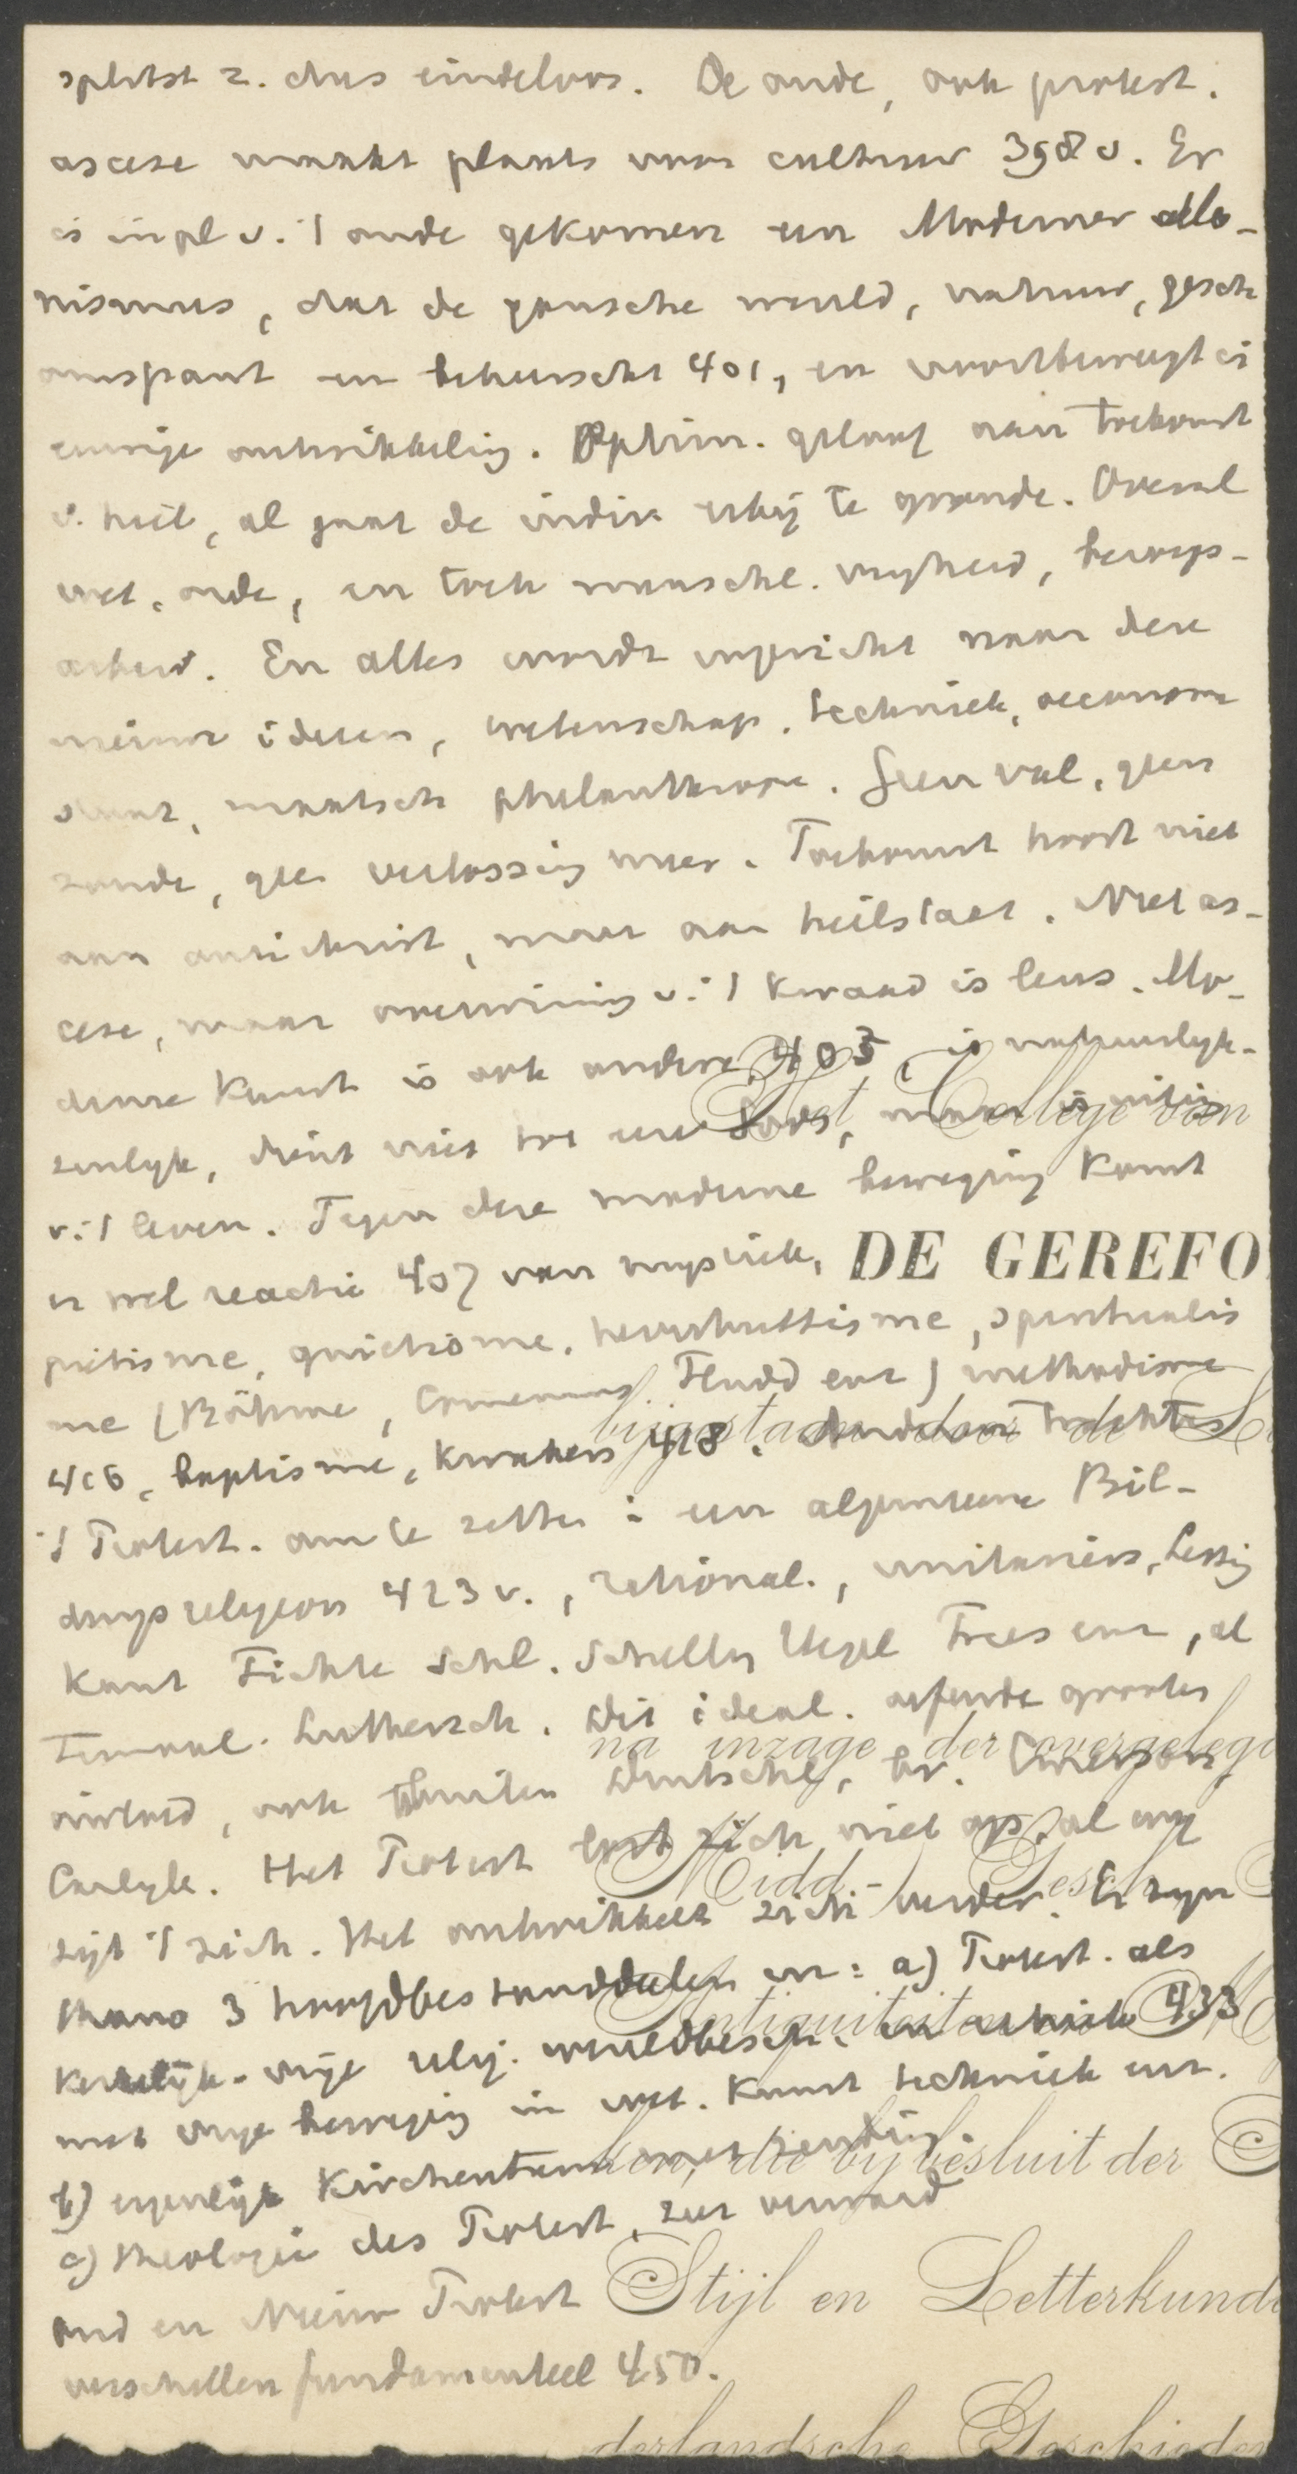 splitst z. dus eindeloos. De oude, ook protest.
ascese maakt plaats voor cultuur 398 v. Er
is in pl v. 't oude gekomen een Moderner Mo-
nismus, dat de gansche wereld, natuur, gesch
omspant en beheerscht 401, en voortbeweegt is
eeuwige ontwikkeling. Optim. geloof aan toekomst
v. heil, al gaat de indiv erbij te gronde. Overal
wet, orde, en toch mensche. vrijheid, beroeps-
arbeid. En alles wordt ingericht naar deze
nieuwe ideeen, wetenschap, techniek, oeconomie
staat, maatsch philanthropie. Geen val, geen
zonde, gee verlossing meer. Toekomst hoort niet
aan antichrist, maar aan heilstaat. Niet as-
cese, maar overwining v. 't kwaad is leus. Mo-
derne kunst is ook andere, 405, is natuurlijk-
zinlijk, dient niet tot eer Gods, maar
Het College van
v. 't leven. Tegen deze moderne beweging komt
er wel reactie 407 van mystiek,
DE GEREFO
pietisme, quietisme, hernhuttisme, spiritualis
me (Böhme, Comenius, Fludd enz) methodisme
416, baptisme, kwakers 418. trachtte
bijgestaan door de
't Protest. om te zetten in een algemeene Bil-
dungsreligion 423 v., rational., unitariers, Lessing
Kant Fichte Schl. Schelling Hegel Fries enz, al
Lutherzch. Dit ideal. oefende grooten
na inzage der overgeleg
invloed, ook buiten Duitschl, bv. Emerson,
Carlyle. Het Protest lost zich niet op, al
Midd- Gesch
't zich. Het ontwikkelt zich verder. Er zyn
thans 3 hoofdbestanddeelen in: a) Protest. als
Antiquiteiten
kerkelijk-vrije relig. wereldbesch. en ethiek 433
met vrije beweging in wet. kunst techniek enz.
b) eigenlijk Kirchentum met zending.
ken, die bij besluit der
c) theologie des Protest, zeer verward
Oud en Nieuw Protest
Stijl en Letterkunde
verschillen fundamenteel 450.
derlandsche Geschieden